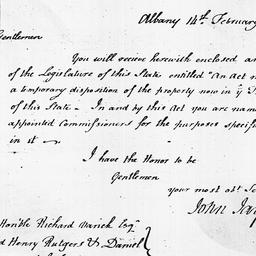 Albany 14th February
Gentlemen
You will receive herewith enclosed an
of the Legislature of this State entitled "An Act
a temporary disposition of the property now in ye
of this State — In and by this Act you are nam
appointed Commissioners for the purposes specifi
in it —
I have the Honor to be
Gentlemen
your most obt Se
John Jay
Honble Richard Varick Esqr
d Henry Rutgers & Daniel